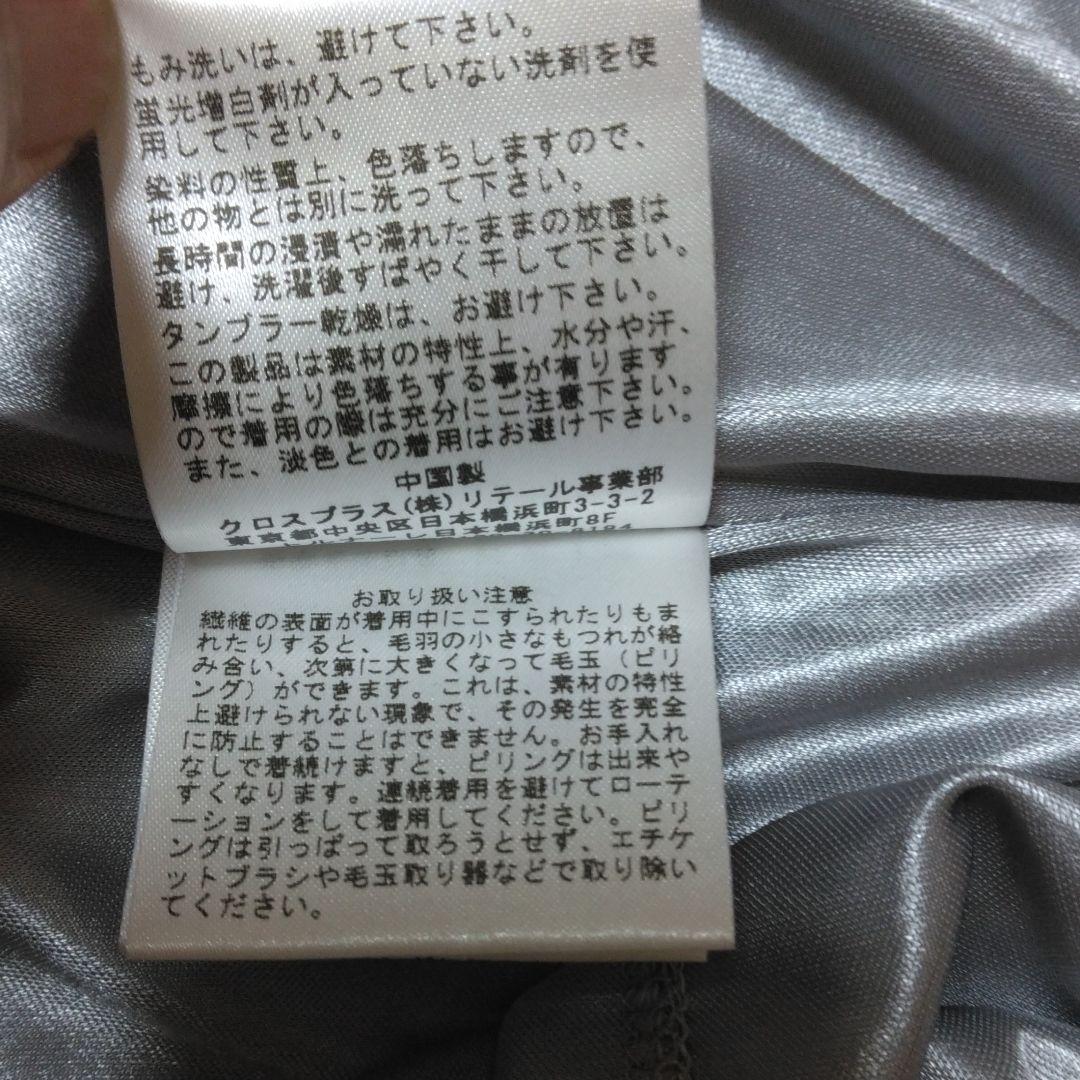 もみ洗いは、避けて下さい。
蛍光増白剤が入っていない洗剤を使
用して下さい。
染料の性質上、色落ちしますので、
他の物とは別に洗って下さい。
長時間の浸漬や濡れたままの放置は
避け、洗濯後すばやく干して下さい。
タンブラー乾燥は、お避け下さい。
この製品は素材の特性上、水分や汗、
摩擦により色落ちする事が有ります
ので着用の際は充分にご注意下さい。
また、淡色との着用はお避け下さい。
中国製
クロスプラス(株)リテール事業部
東京都中央区日本橋浜町3-3-2
日本橋浜町8F
お取り扱い注意
繊維の表面が着用中にこすられたりもま
れたりすると、毛羽の小さなもつれが絡
み合い、次第に大きくなって毛玉(ピリ
ング)ができます。これは、素材の特性
上避けられない現象で、その発生を完全
に防止することはできません。お手入れ
なしで着続けますと、ピリングは出来や
すくなります。連続着用を避けてローテ
ーションをして着用してください。ピリ
ングは引っぱって取ろうとせず、エチケ
ットブラシや毛玉取り器などで取り除い
てください。